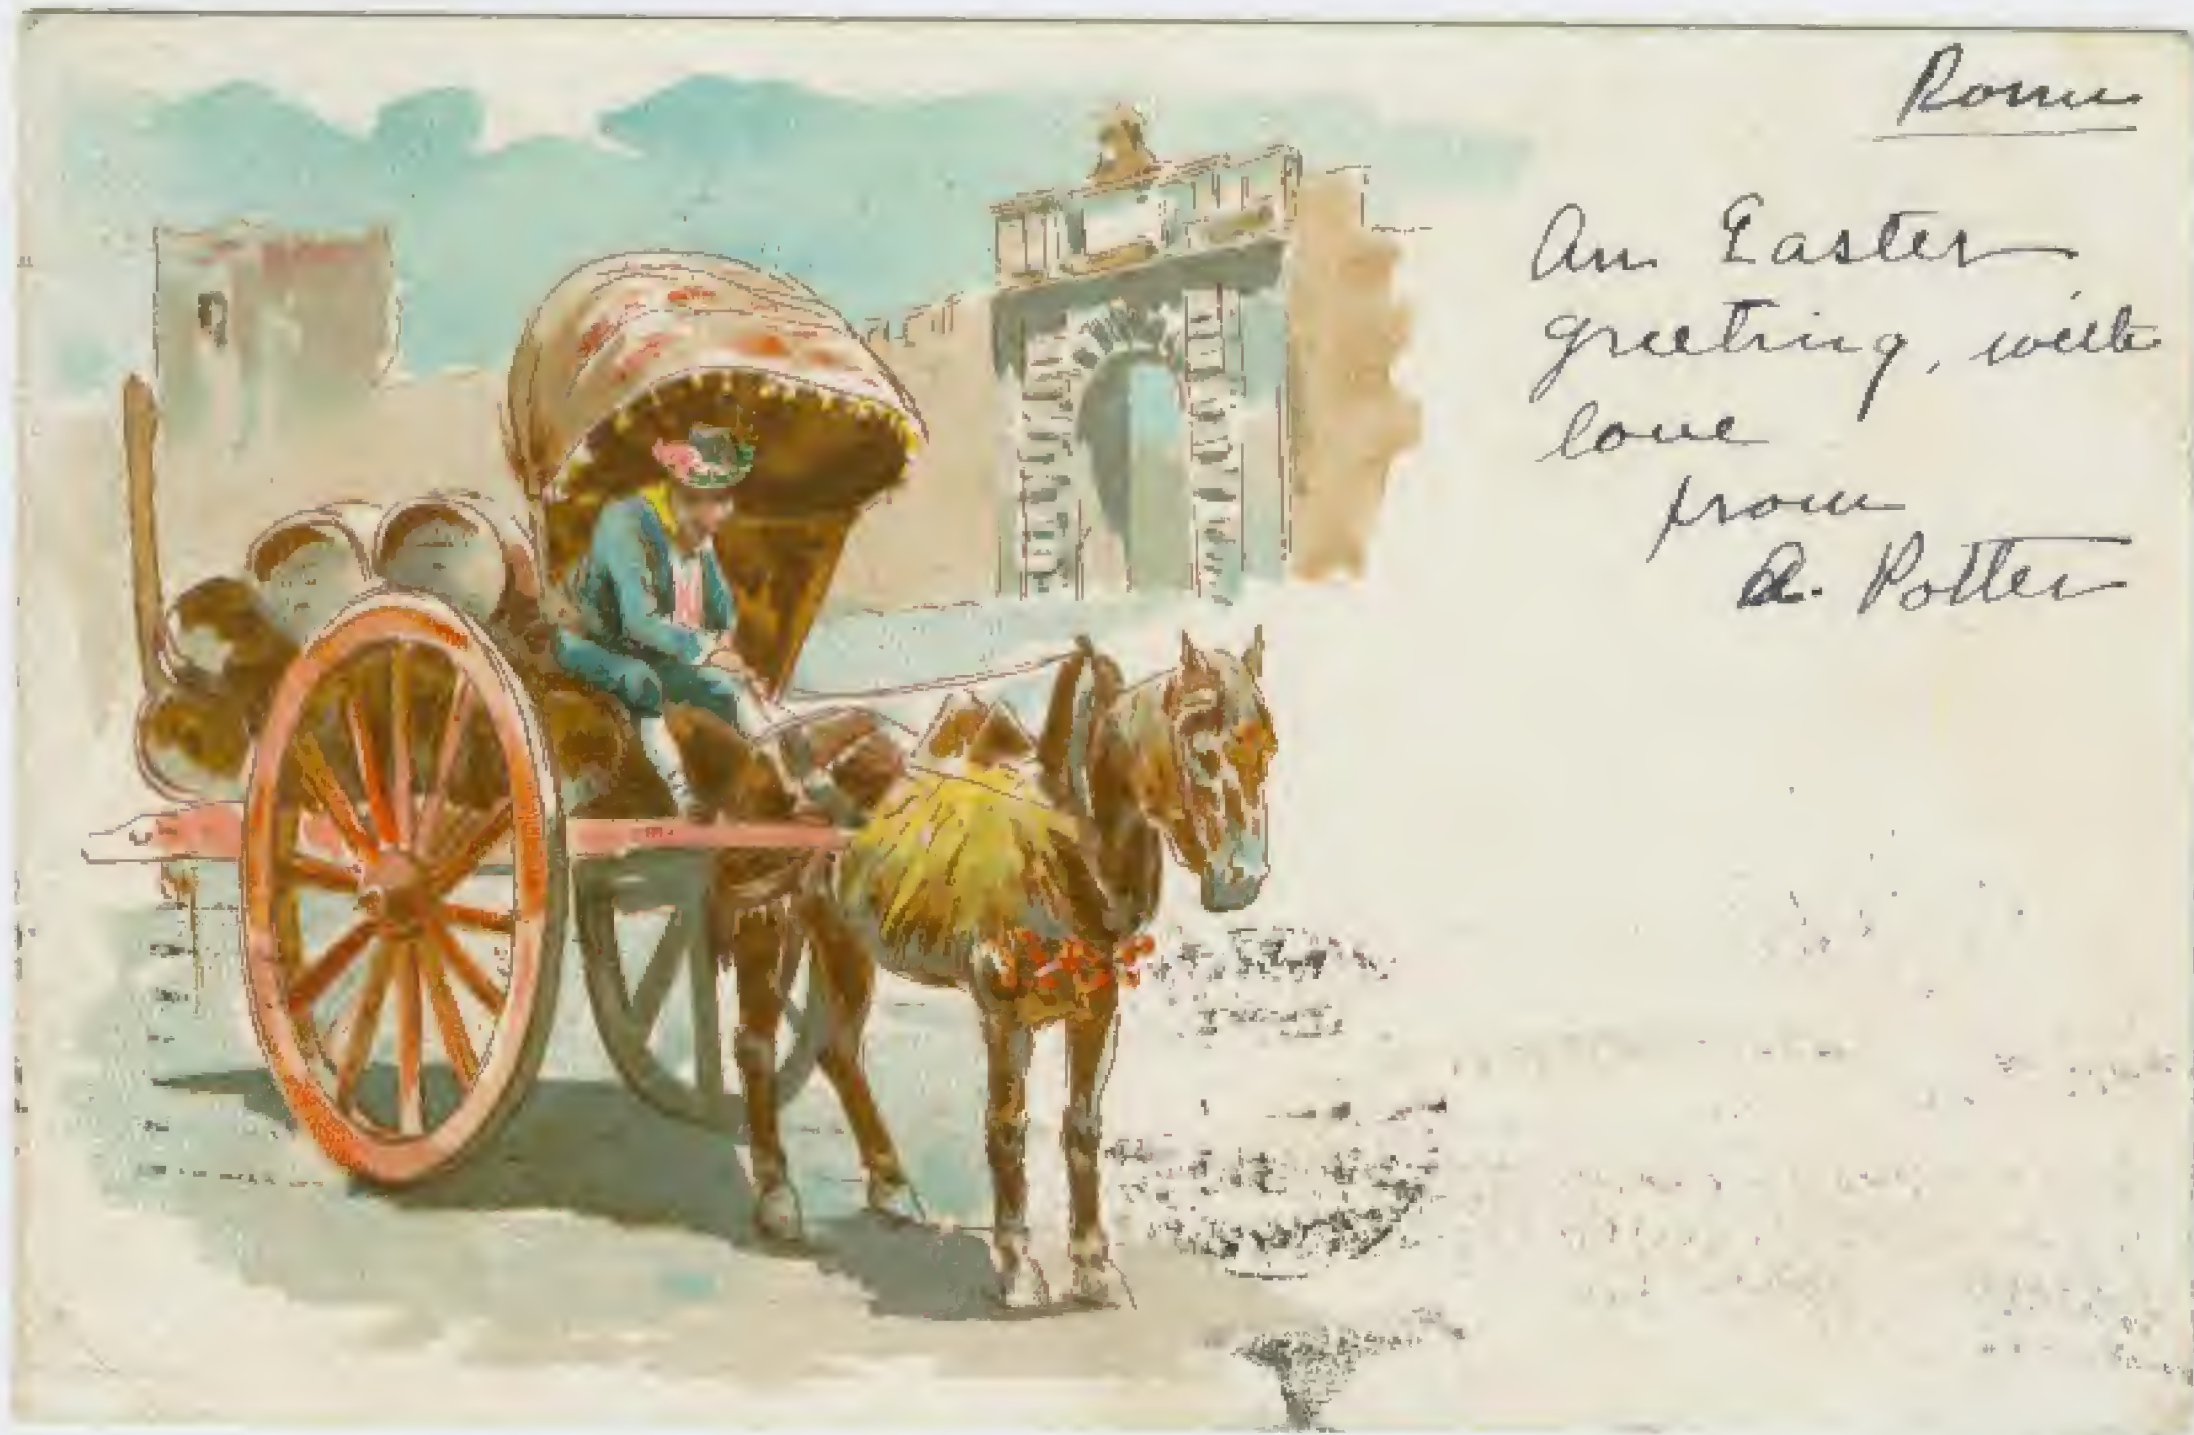 Rome
An Easter
greeting, with
love
from
A. Potter